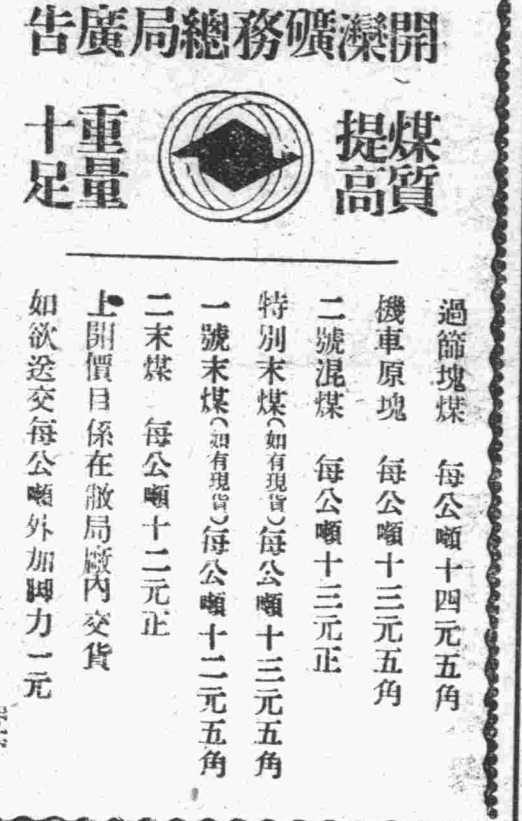 開灤礦務總局廣告
煤質提高
重量十足
過篩塊煤　每公噸十四元五角
機車原塊　每公噸十三元五角
二號混煤　每公噸十三元正
特別末煤（如有現貨）每公噸十三元五角
一號末煤（如有現貨）每公噸十二元五角
二末煤　每公噸十二元正
上開價目係在敝局廠內交貨
如欲送交每公噸外加脚力一元